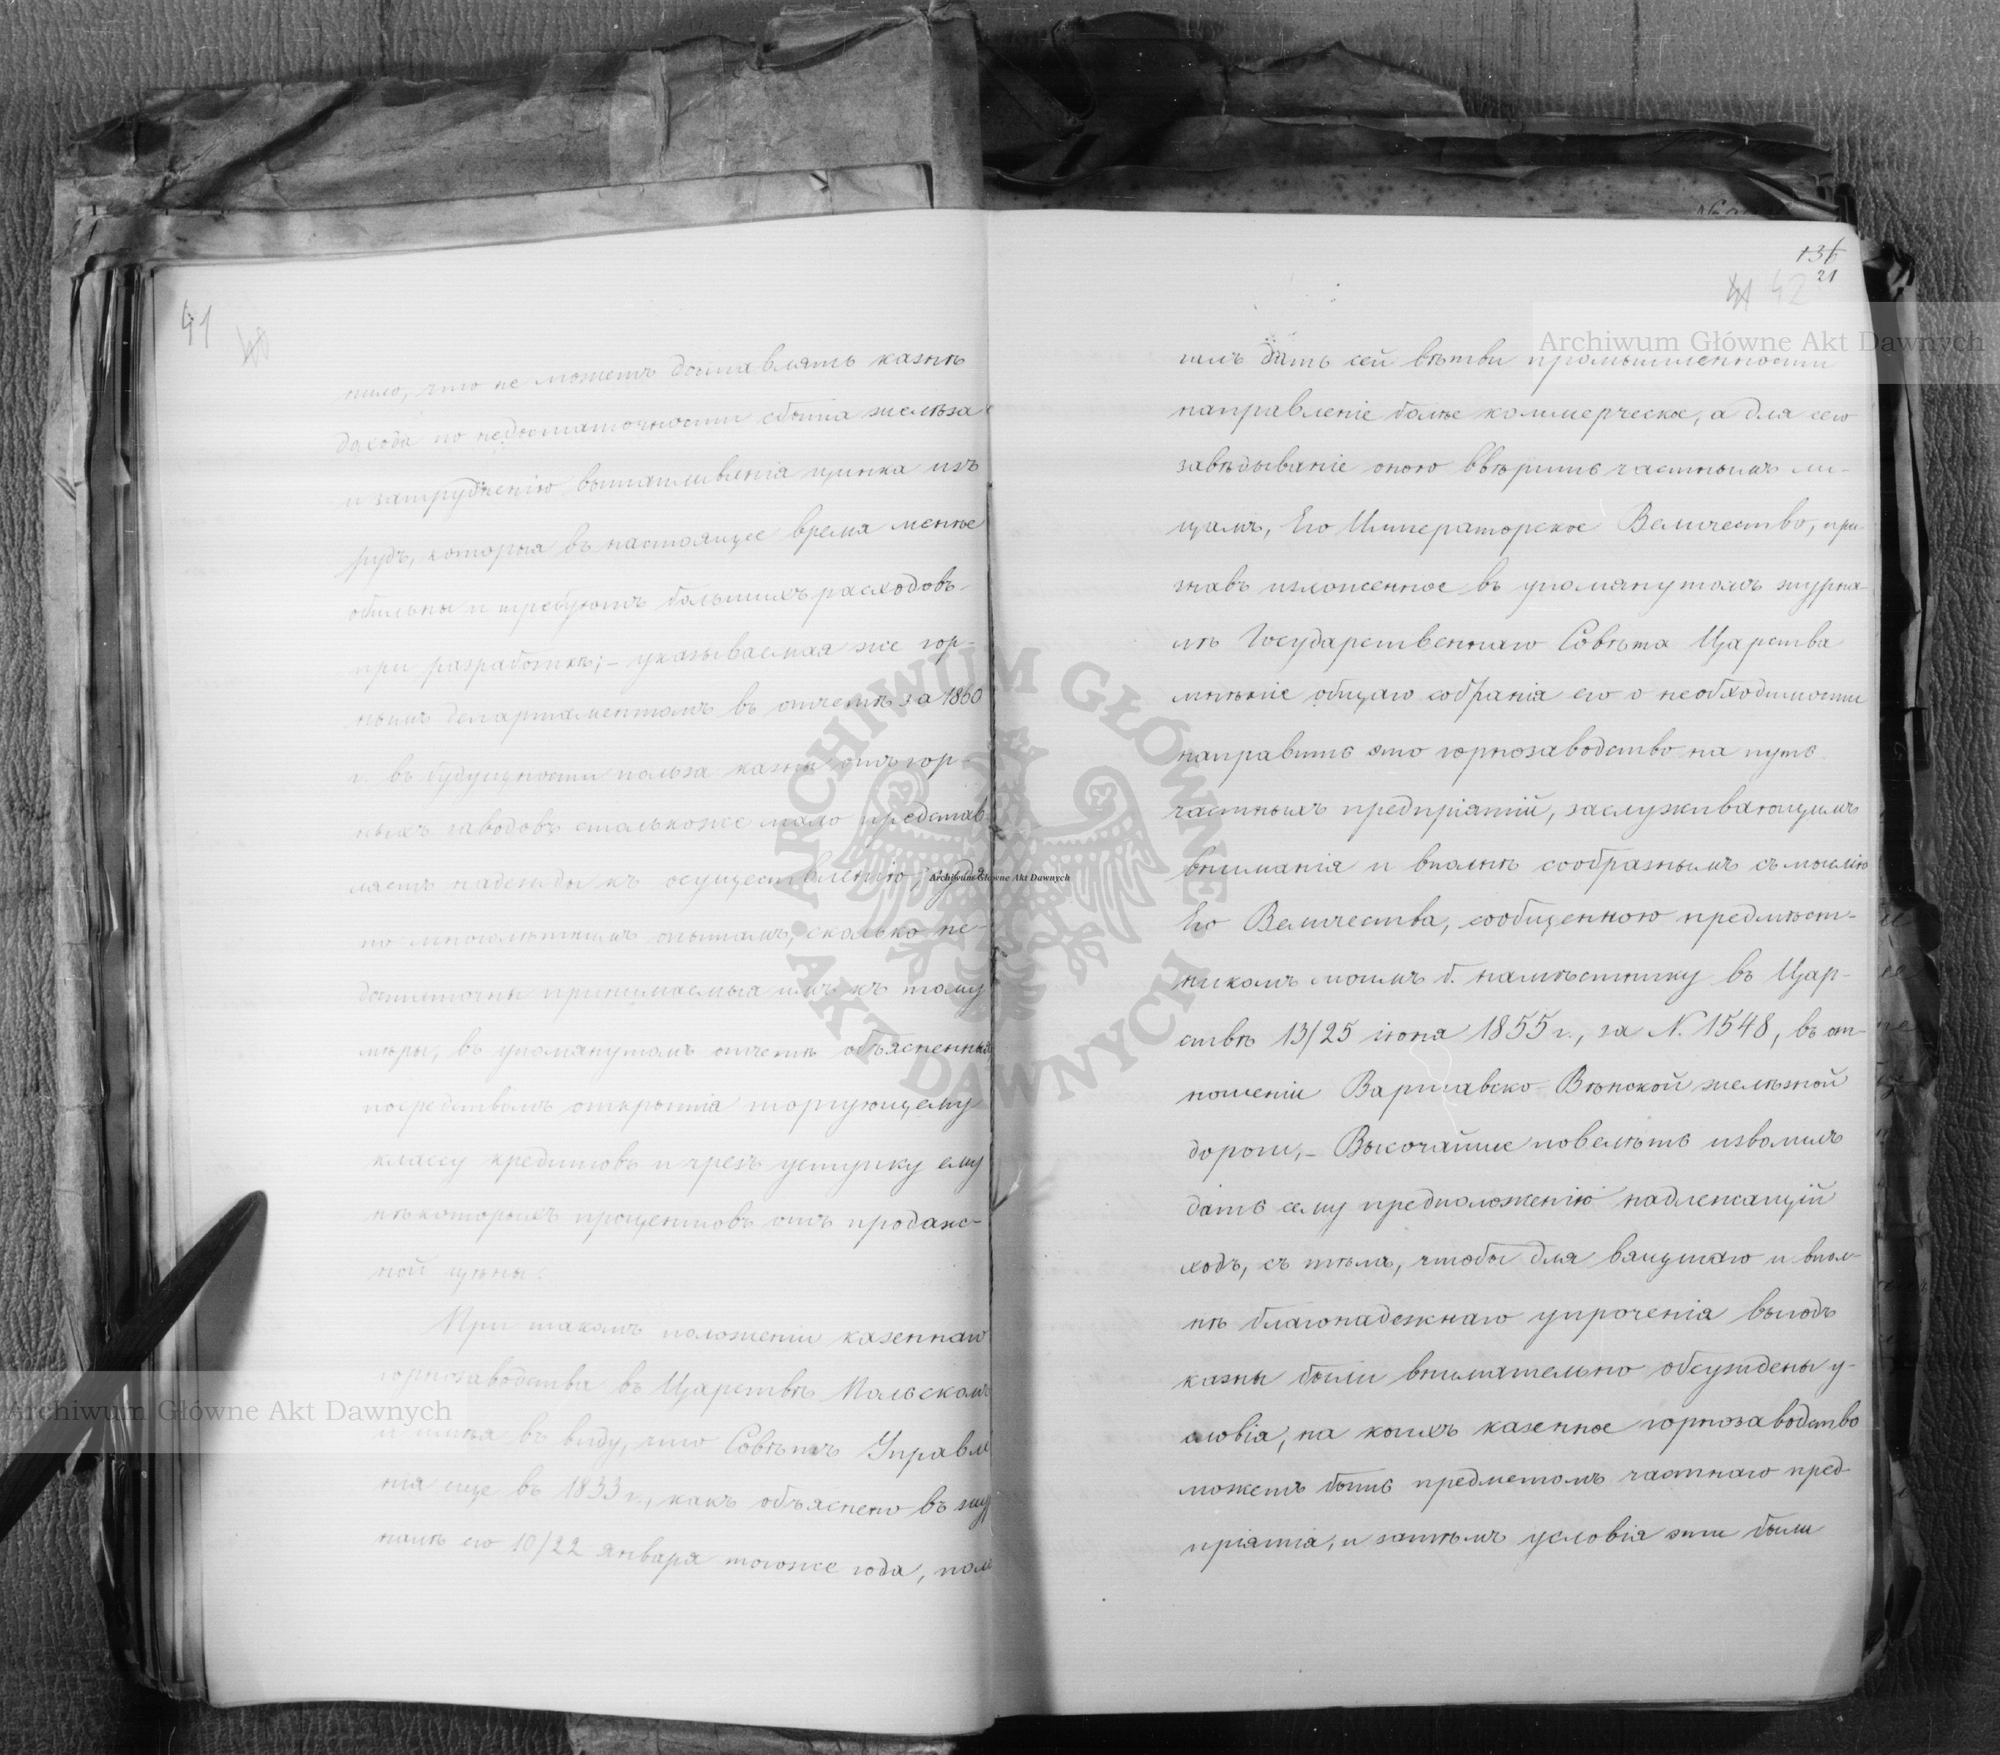 41
нило, что не можетъ доставлять казнѣ
дохода по недостаточности сбыта желѣза
и затрудненію выплавленія цинка изъ
рудъ, которыя въ настоящее время менѣе
обильны и требуютъ большихъ расходовъ
при разработкѣ; – указываемая же гор-
нымъ департаментомъ въ отчетѣ за 1860
г. въ будущности польза казны отъ гор-
ныхъ заводовъ столькоже мало представ
ляетъ надежды къ осуществленію, судя
по многолѣтнимъ опытамъ, сколько не-
достаточны принимаемыя имъ къ тому
мѣры, въ упомянутомъ отчетѣ объясненныя
посредствомъ открытія торгующему
классу кредитовъ и чрезъ уступку ему
нѣкоторыхъ процентовъ отъ продаж-
ной цѣны.
При такомъ положеніи казеннаго
горнозаводства въ Царствѣ Польскомъ
и имѣя въ виду, что Совѣтъ Управле
нія еще въ 1833 г., какъ объяснено въ жур
налѣ его 10/22 января тогоже года, пола
136
21
41 42
галъ дать сей вѣтви промышленности
направленіе болѣе коммерческое, а для сего
завѣдываніе оною ввѣрить частнымъ ли-
цамъ, Его Императорское Величество, при
знавъ изложенное въ упомянутомъ журна-
лѣ Государственнаго Совѣта Царства
мнѣніе общаго собранія его о необходимости
направить это горнозаводство на путь
частныхъ предпріятій, заслуживающимъ
вниманія и вполнѣ сообразнымъ съ мыслію
Его Величества, сообщенною предмѣст-
никомъ моимъ б. намѣстнику въ Цар-
ствѣ 13/25 іюня 1855 г., за N. 1548, въ от-
ношеніи Варшавско-Вѣнской желѣзной
дороги, – Высочайше повелѣть изволилъ
дать сему предположенію надлежащій
ходъ, съ тѣмъ, чтобы для вящшаго и впол-
нѣ благонадежнаго упроченія выгодъ
казны были внимательно обсуждены у-
словія, на коихъ казенное горнозаводство
можетъ быть предметомъ частнаго пред-
пріятія, и затѣмъ условія эти были
Archiwum Główne Akt Dawnych
Archiwum Główne Akt Dawnych
Archiwum Główne Akt Dawnych
ARCHIWUM GŁÓWNE · AKT DAWNYCH ·